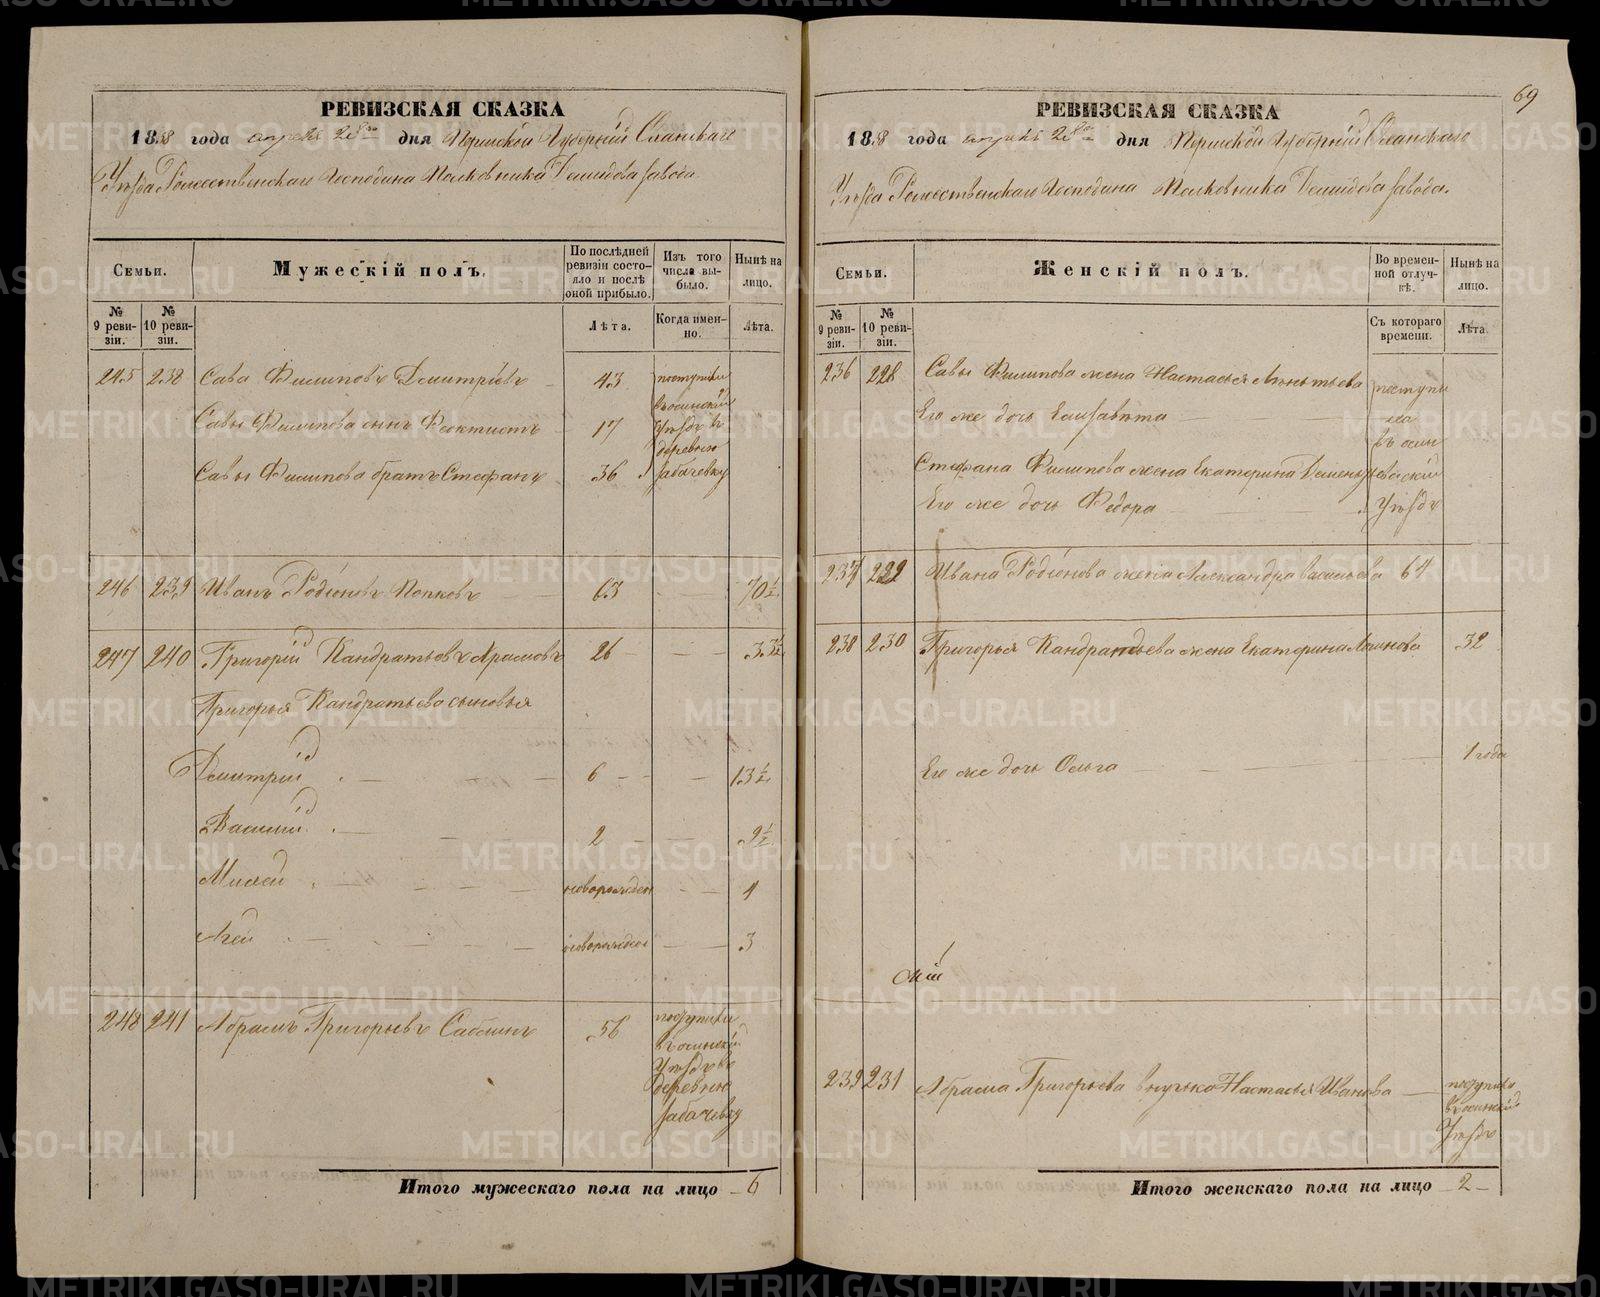 РЕВИЗСКАЯ СКАЗКА
1858 года апреля 28го дня Пермской Губерніи Оханскаго
Уѣзда Рожественскаго Господина Полковника Демидова завода
Семьи.
Мужескій полъ.
По послѣдней ревизіи состояло и послѣ оной прибыло.
Изъ того числа выбыло.
Нынѣ на лицо.
№ 9 ревизіи.
№ 10 ревизіи.
Лѣта.
Когда именно.
Лѣта.
245 238 Сава Филиповъ Дмитріевъ 43 поступили
въ осинскій
Савы Филипова сынъ Феоктистъ 17 Уѣздъ въ
деревню
Савы Филипова братъ Стефанъ 36 Забачевку
246 239 Иванъ Родіоновъ Попковъ 63 70½
247 240 Григорій Кандратьевъ 26 33½
Григорья Кандратьева сыновья
Дмитрій 6 13½
Василій 2 9½
новорожден 4
новорожден 3
248 241 Абрамъ Григорьевъ 56 поступили
въ осинскій
Уѣздъ въ
деревню
Забачевку
Итого мужескаго пола на лицо 6
69
РЕВИЗСКАЯ СКАЗКА
1858 года апреля 28го дня Пермской Губерніи Оханскаго
Уѣзда Рожественскаго Господина Полковника Демидова завода.
Семьи.
Женскій полъ.
Во временной отлучкѣ.
Нынѣ на лицо.
№ 9 ревизіи.
№ 10 ревизіи.
Съ котораго времени.
Лѣта.
236 228 Савы Филипова жена Настасья Леонтьева поступи
Его же дочь Елизавета ла
въ осин
Стефана Филипова жена Екатерина скій
Его же дочь Федора Уѣздъ
237 229 Ивана Родіонова жена Александра Васильева 64
238 230 Григорья Кандратьева жена Екатерина 32
Его же дочь Ольга 1 года
239 231 Абрама Григорьева внучка Настасья Иванова поступила
въ осинскій
Уѣздъ
Итого женскаго пола на лицо 2
METRIKI.GASO-URAL.RU